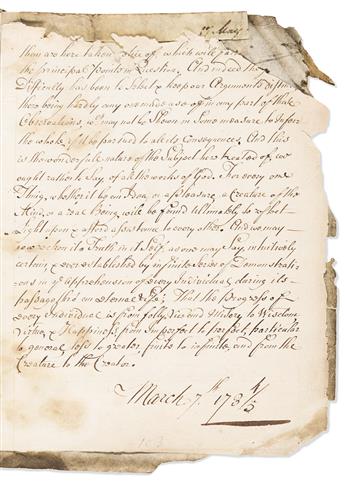 than are here taken notice of, which will
the principal Points in Question. And indeed the
Difficulty has been to select & keep our Arguments
there being hardly any one made use of in any part of these
Observations, wch may not be shown in some measure to infer
the whole, if it be pursued to all its Consequences. And this
is the wonderfull nature of the Subject here treated of, we
ought rather to say, of all the works of God. For every one
Thing, whether it be an Idea, or a pleasure, a Creature of the
Mind, or a real Being, will be found ultimately to reflect
Light upon & afford assistance to every other. And we may
now reckon it a Truth in it Self, as one may Say, intuitively
certain, & ever established by infinite Series of Demonstrati-
ons in ye apprehension of every Individual during its
passage thro' an eternal Life; That the Progress of
every Individual is from folly, Vice and Misery to Wisdom
Virtue & Happiness, from Imperfect to perfect, particular
to general, less to greater, finite to infinite, and from the
Creature to the Creator.
March 7.th 173 4/5